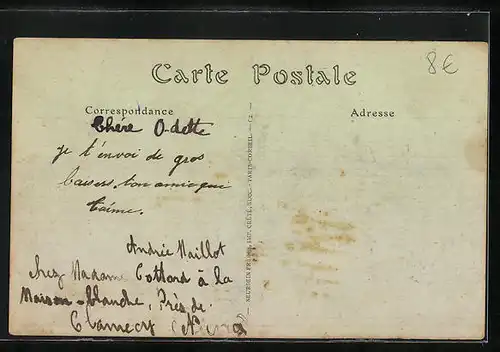 8€
Carte Postale
Correspondance
Adresse
Chère Odette
je t'envoi de gros
baisers, ton amie qui
t'aime.
Andrée Maillot
chez Madame Cottard à la
Maison-blanche, Près de
Clamecy (Nièvre)